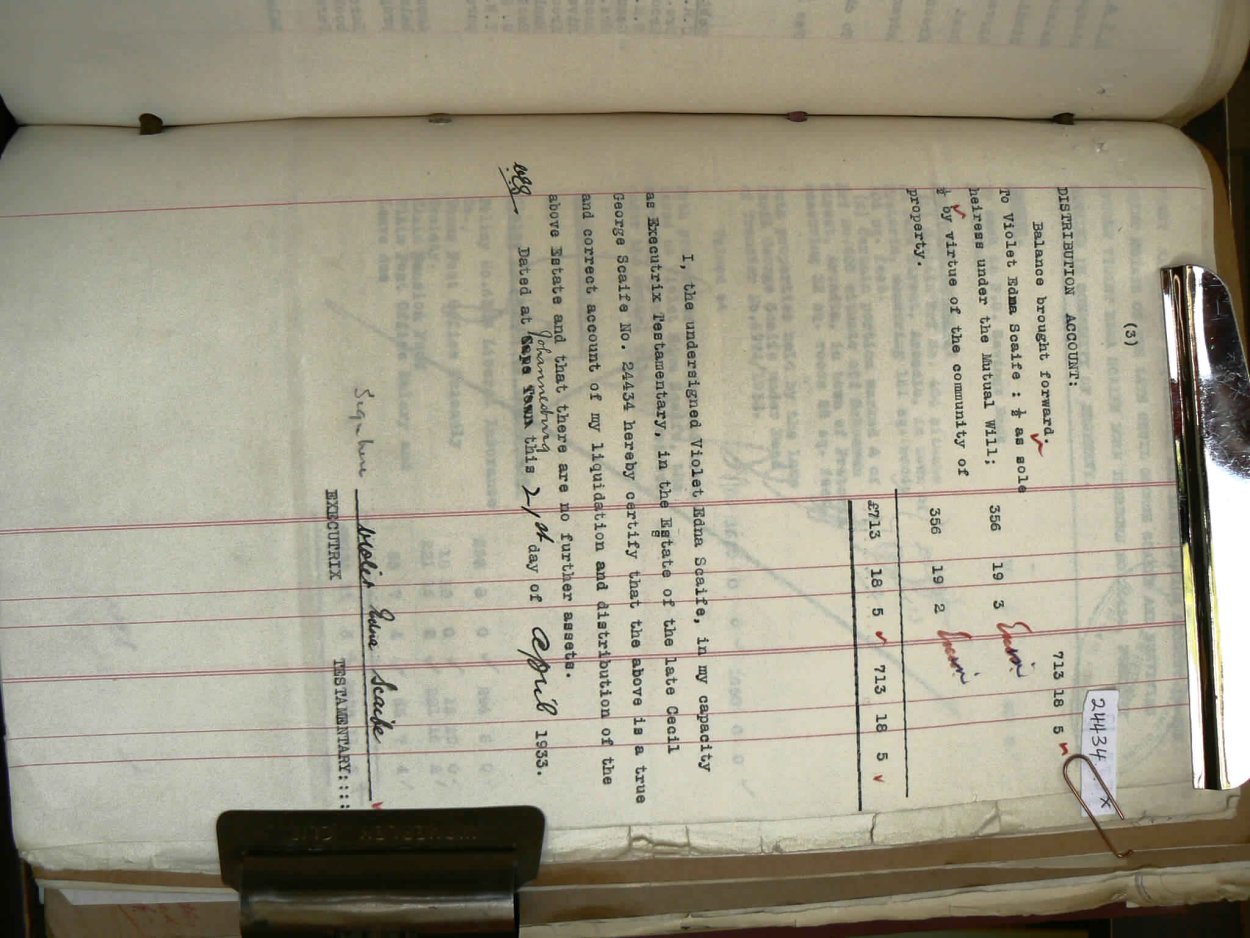 (3)
24434. x
DISTRIBUTION ACCOUNT:
Balance brought forward. 713 18 5
To Violet Edna Scaife : ½ as sole
heiress under the Mutual Will; 356 19 3
½ by virtue of the community of
property. 356 19 2
£713 18 5 713 18 5
I, the undersigned Violet Edna Scaife, in my capacity
as Executrix Testamentary, in the Estate of the late Cecil
George Scaife No. 24434 hereby certify that the above is a true
and correct account of my liquidation and distribution of the
above Estate and that there are no further assets.
Johannesburg
Dated at Cape Town this 21st day of April 1933.
Signature Violet Edna Scaife
EXECUTRIX TESTAMENTARY::::